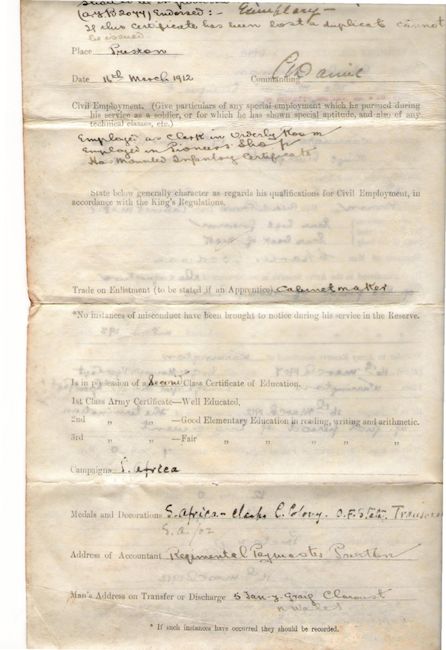 (A.F.B. 2077) Endorsed :- Exemplary-
If this certificate has been lost a duplicate cannot
be issued.
Place Preston
Date 16th March 1912 Commanding
Civil Employment. (Give particulars of any special employment which he pursued during
his service as a soldier, or for which he has shown special aptitude, and also of any
technical classes, etc.)
Employed as Clerk in Orderly Room
Employed in Pioneers Shop
Has Mounted Infantry Certificate
State below generally character as regards his qualifications for Civil Employment, in
accordance with the King's Regulations.
Trade on Enlistment (to be stated if an Apprentice) Cabinetmaker
*No instances of misconduct have been brought to notice during his service in the Reserve.
Is in possession of a Second Class Certificate of Education.
1st Class Army Certificate—Well Educated.
2nd „ „ —Good Elementary Education in reading, writing and arithmetic.
3rd „ „ —Fair „ „ „
Campaigns S. Africa
Medals and Decorations S. Africa - clasps C. Colony. O.F. State. Transvaal
S.A./02
Address of Accountant Regimental Paymaster Preston
Man's Address on Transfer or Discharge 5 Tan-y-Graig
N Wales
* If such instances have occurred they should be recorded.